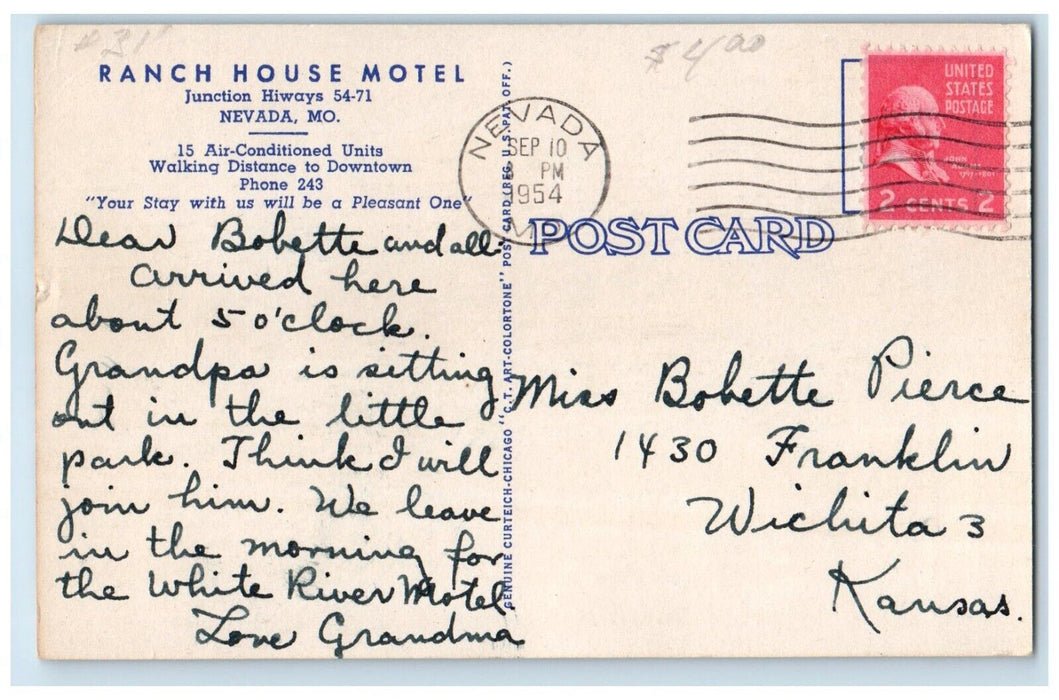 #31
$4.00
RANCH HOUSE MOTEL
Junction Hiways 54-71
NEVADA, MO.
15 Air-Conditioned Units
Walking Distance to Downtown
Phone 243
"Your Stay with us will be a Pleasant One"
Dear Bobette and all-
arrived here
about 5 o'clock.
Grandpa is sitting
out in the little
park. Think I will
join him. We leave
in the morning for
the White River Motel.
Love Grandma
GENUINE CURTEICH-CHICAGO "C.T. ART-COLORTONE" POST CARD (REG. U.S. PAT. OFF.)
NEVADA
SEP 10
PM
1954
UNITED
STATES
POSTAGE
JOHN
2 CENTS 2
POST CARD
Miss Bobette Pierce
1430 Franklin
Wichita 3
Kansas.